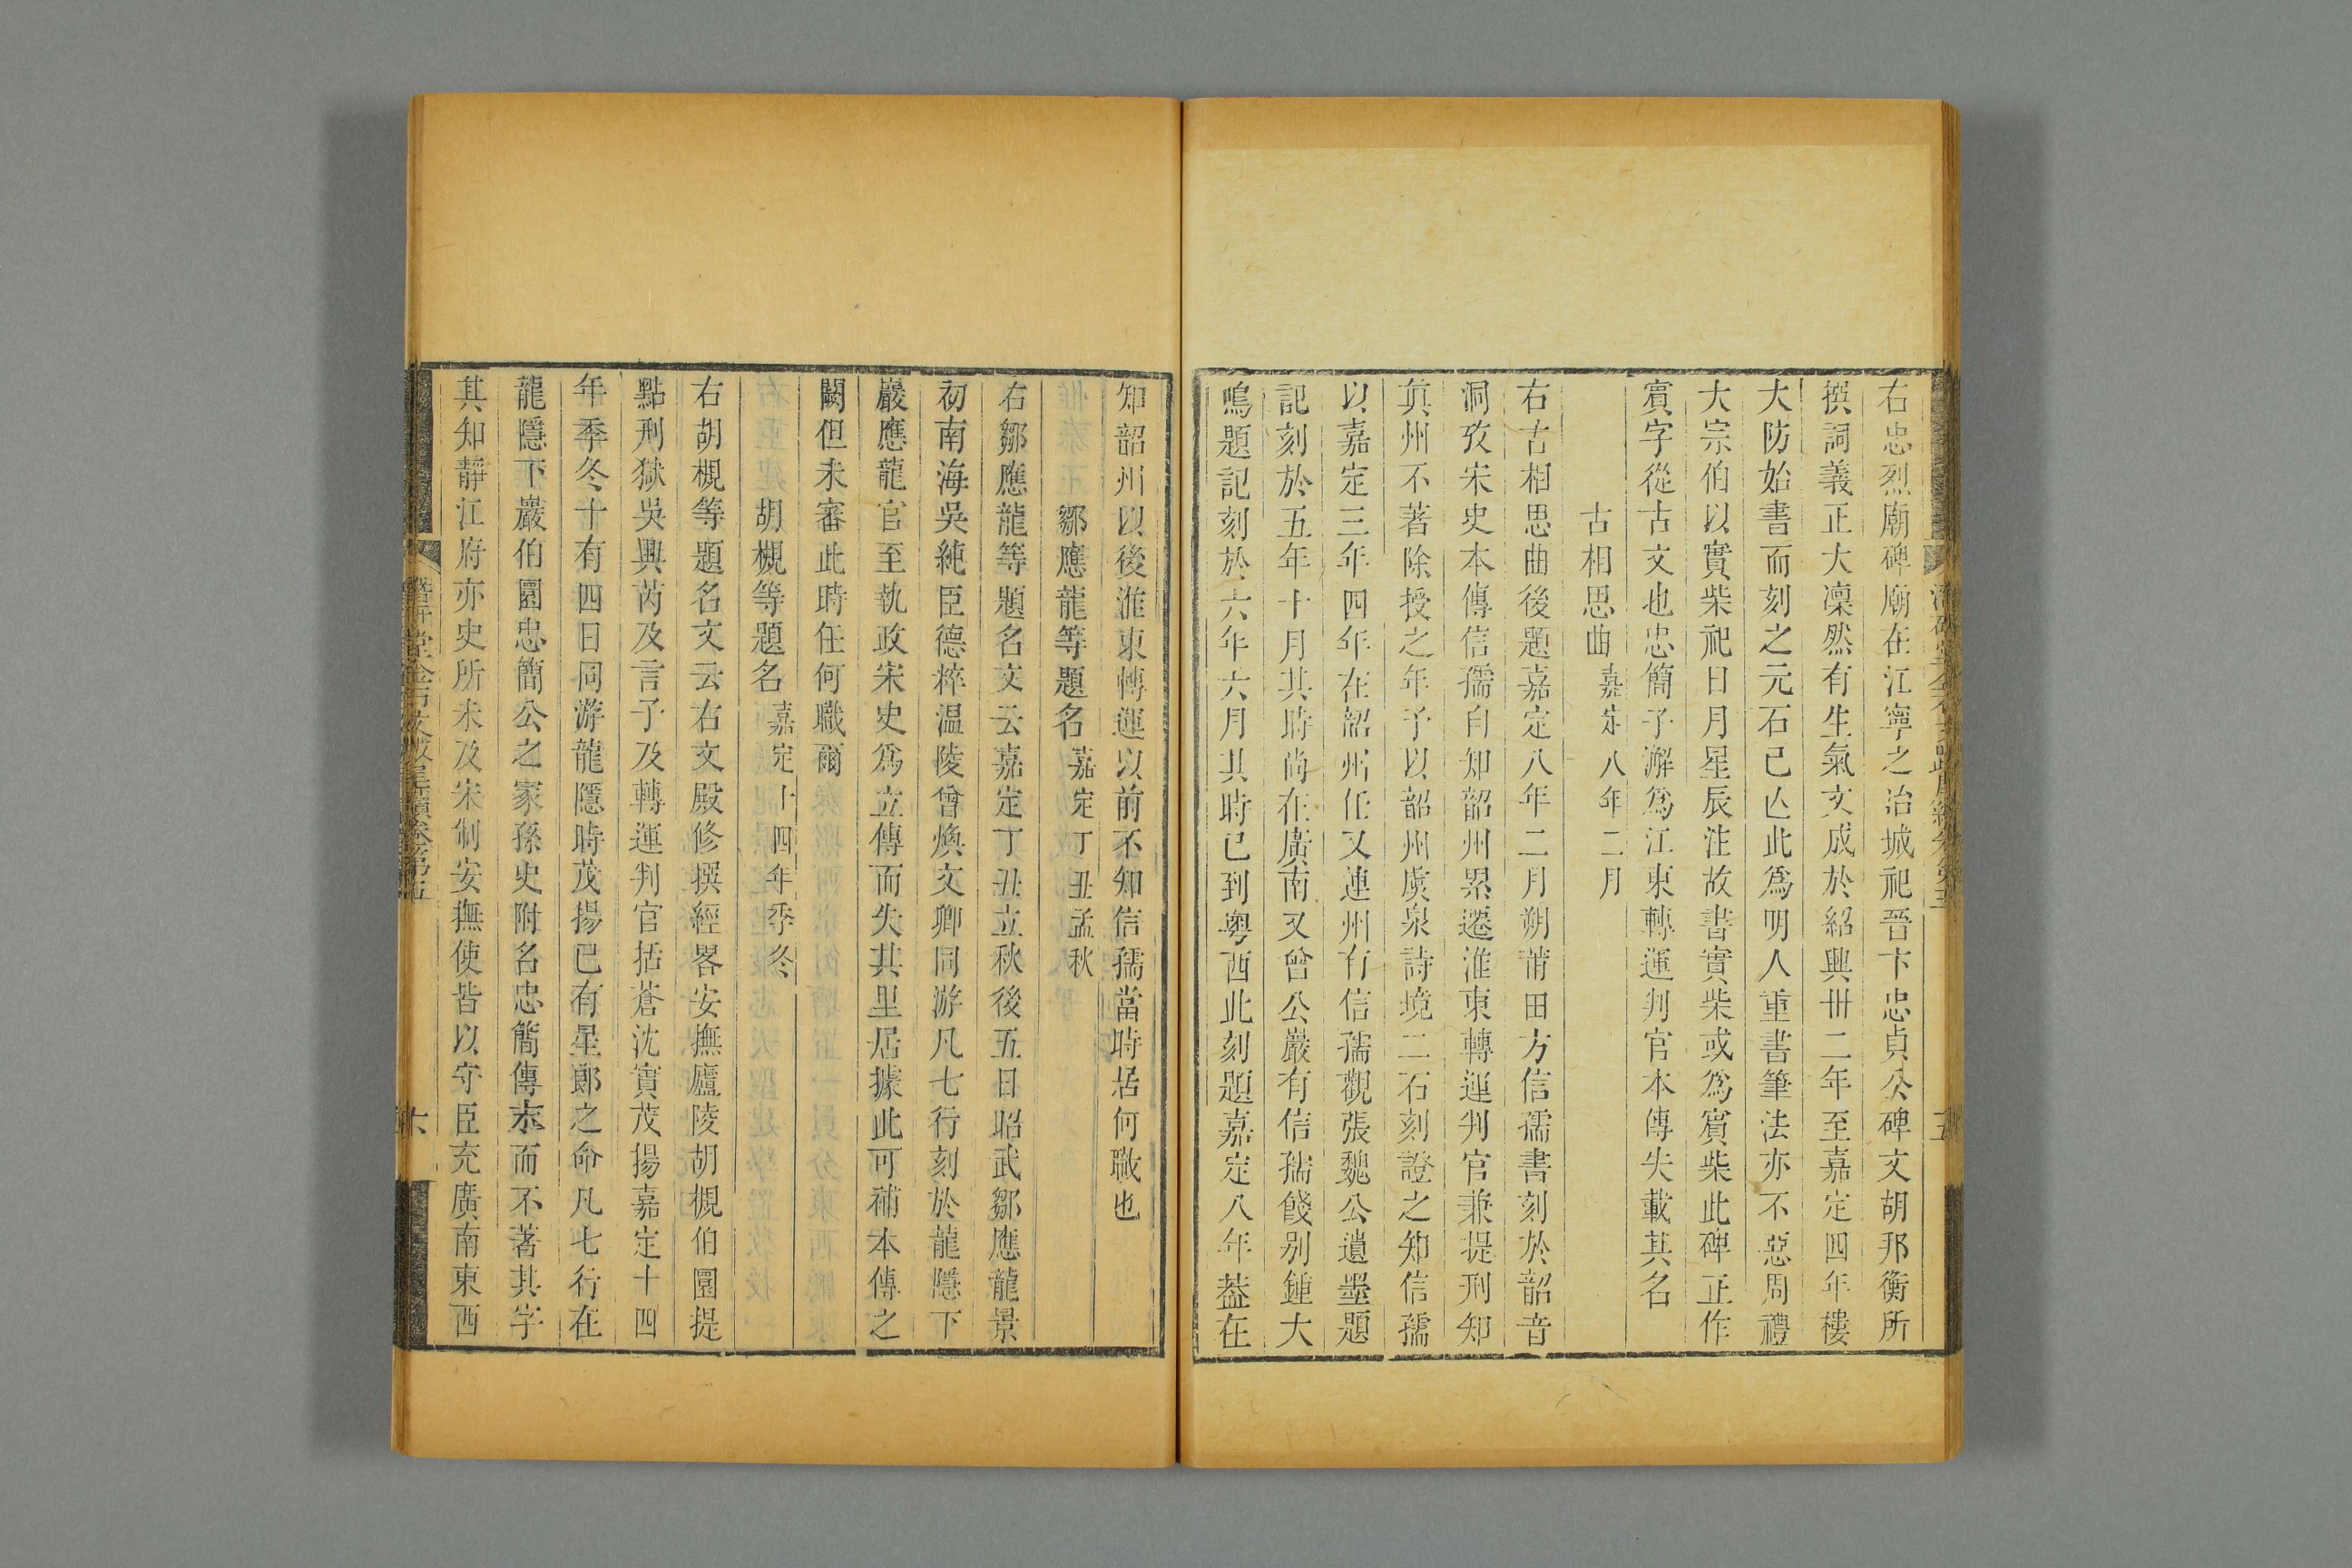 右忠烈廟碑廟在江寧之治城祀晉卞忠貞公碑文胡邦衡所
撰詞義正大凜然有生氣文成於紹興卅二年至嘉定四年樓
大防始書而刻之元石已亾此爲明人重書筆法亦不惡周禮
大宗伯以實柴祀日月星辰注故書實柴或爲賓柴此碑正作
賓字從古文也忠簡子澥爲江東轉運判官本傳失載其名
古相思曲嘉定八年二月
右古相思曲後題嘉定八年二月朔莆田方信孺書刻於韶音
洞攷宋史本傳信孺自知韶州累遷淮東轉運判官兼提刑知
真州不著除授之年予以韶州虞泉詩境二石刻證之知信孺
以嘉定三年四年在韶州任又連州有信孺觀張魏公遺墨題
記刻於五年十月其時尚在廣南又曾公巖有信孺餞別鍾大
鳴題記刻於六年六月其時已到粵西此刻題嘉定八年葢在
知韶州以後淮東轉運以前不知信孺當時居何職也
鄒應龍等題名嘉定丁丑孟秋
右鄒應龍等題名文云嘉定丁丑立秋後五日昭武鄒應龍景
初南海吳純臣德粹温陵曾煥文卿同游凡七行刻於龍隱下
巖應龍官至執政宋史爲立傳而失其里居據此可補本傳之
闕但未審此時任何職爾
胡槻等題名嘉定十四年季冬
右胡槻等題名文云右文殿修撰經畧安撫廬陵胡槻伯圜提
點刑獄吳興芮及言子及轉運判官括蒼沈實茂揚嘉定十四
年季冬十有四日同游龍隱時茂揚已有星郎之命凡七行在
龍隱下巖伯圜忠簡公之家孫史附名忠簡傳末而不著其字
其知靜江府亦史所未及宋制安撫使皆以守臣充廣南東西
潛研堂金石文跋尾續卷第五
六